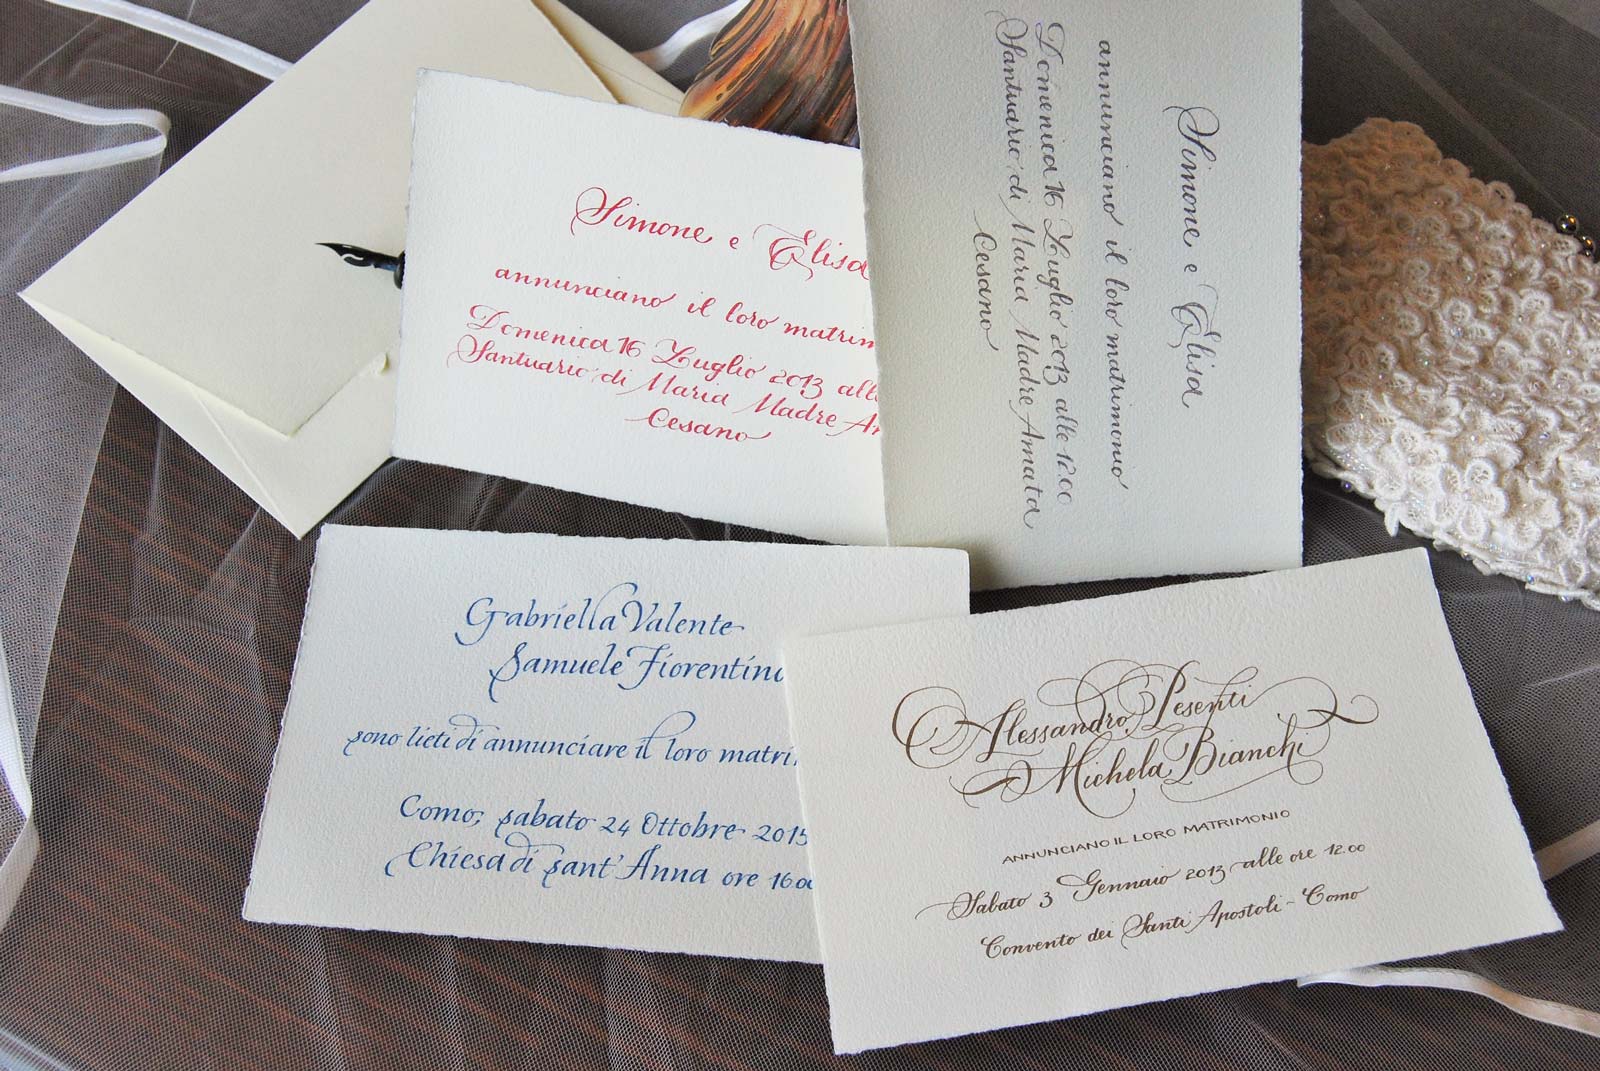 Simone e Elisa
annunciano il loro matrim
Domenica 16 Luglio 2013 alle
Santuario di Maria Madre Am
Cesano
Simone e Elisa
annunciano il loro matrimonio
Domenica 16 Luglio 2013 alle 12.00
Santuario di Maria Madre Amata
Cesano
Gabriella Valente
Samuele Fiorentino
sono lieti di annunciare il loro matri
Como, sabato 24 Ottobre 2015
Chiesa di sant'Anna ore 16.00
Alessandro Pesenti
Michela Bianchi
ANNUNCIANO IL LORO MATRIMONIO
Sabato 3 Gennaio 2013 alle ore 12.00
Convento dei Santi Apostoli - Como